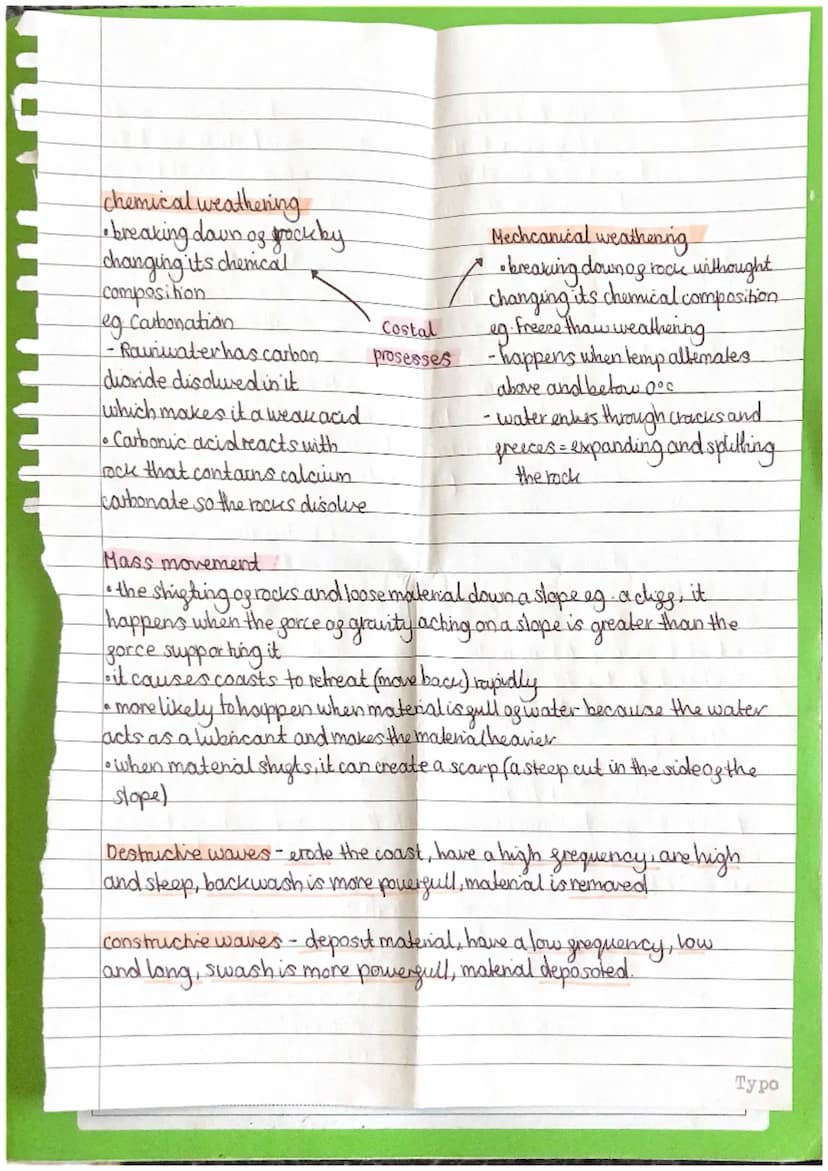 chemical weathering
• breaking down of rock by
changing its chemical
composition
eg Carbonation
- Rainwater has carbon
dioxide disolved in it
which makes it a weak acid
• Carbonic acid reacts with
rock that contains calcium
carbonate so the rocks disolve
Costal
prosesses
Mechcanical weathering
• breaking down of rock withought
changing its chemical composition
eg. freeze thaw weathering
- happens when temp alternates
above and below 0°c
- water enters through cracks and
freezes = expanding and splitting
the rock
Mass movement
• the shifting of rocks and loose material down a slope eg. a cliff, it
happens when the force of gravity acting on a slope is greater than the
force supporting it
• it causes coasts to retreat (move back) rapidly
• more likely to happen when material is full of water because the water
acts as a lubricant and makes the material heavier
• when material shifts, it can create a scarp (a steep cut in the side of the
slope)
Destructive waves - erode the coast, have a high frequency, are high
and steep, backwash is more powerfull, material is removed
constructive waves - deposit material, have a low frequency, low
and long, swash is more powerfull, material deposoted.
Typo